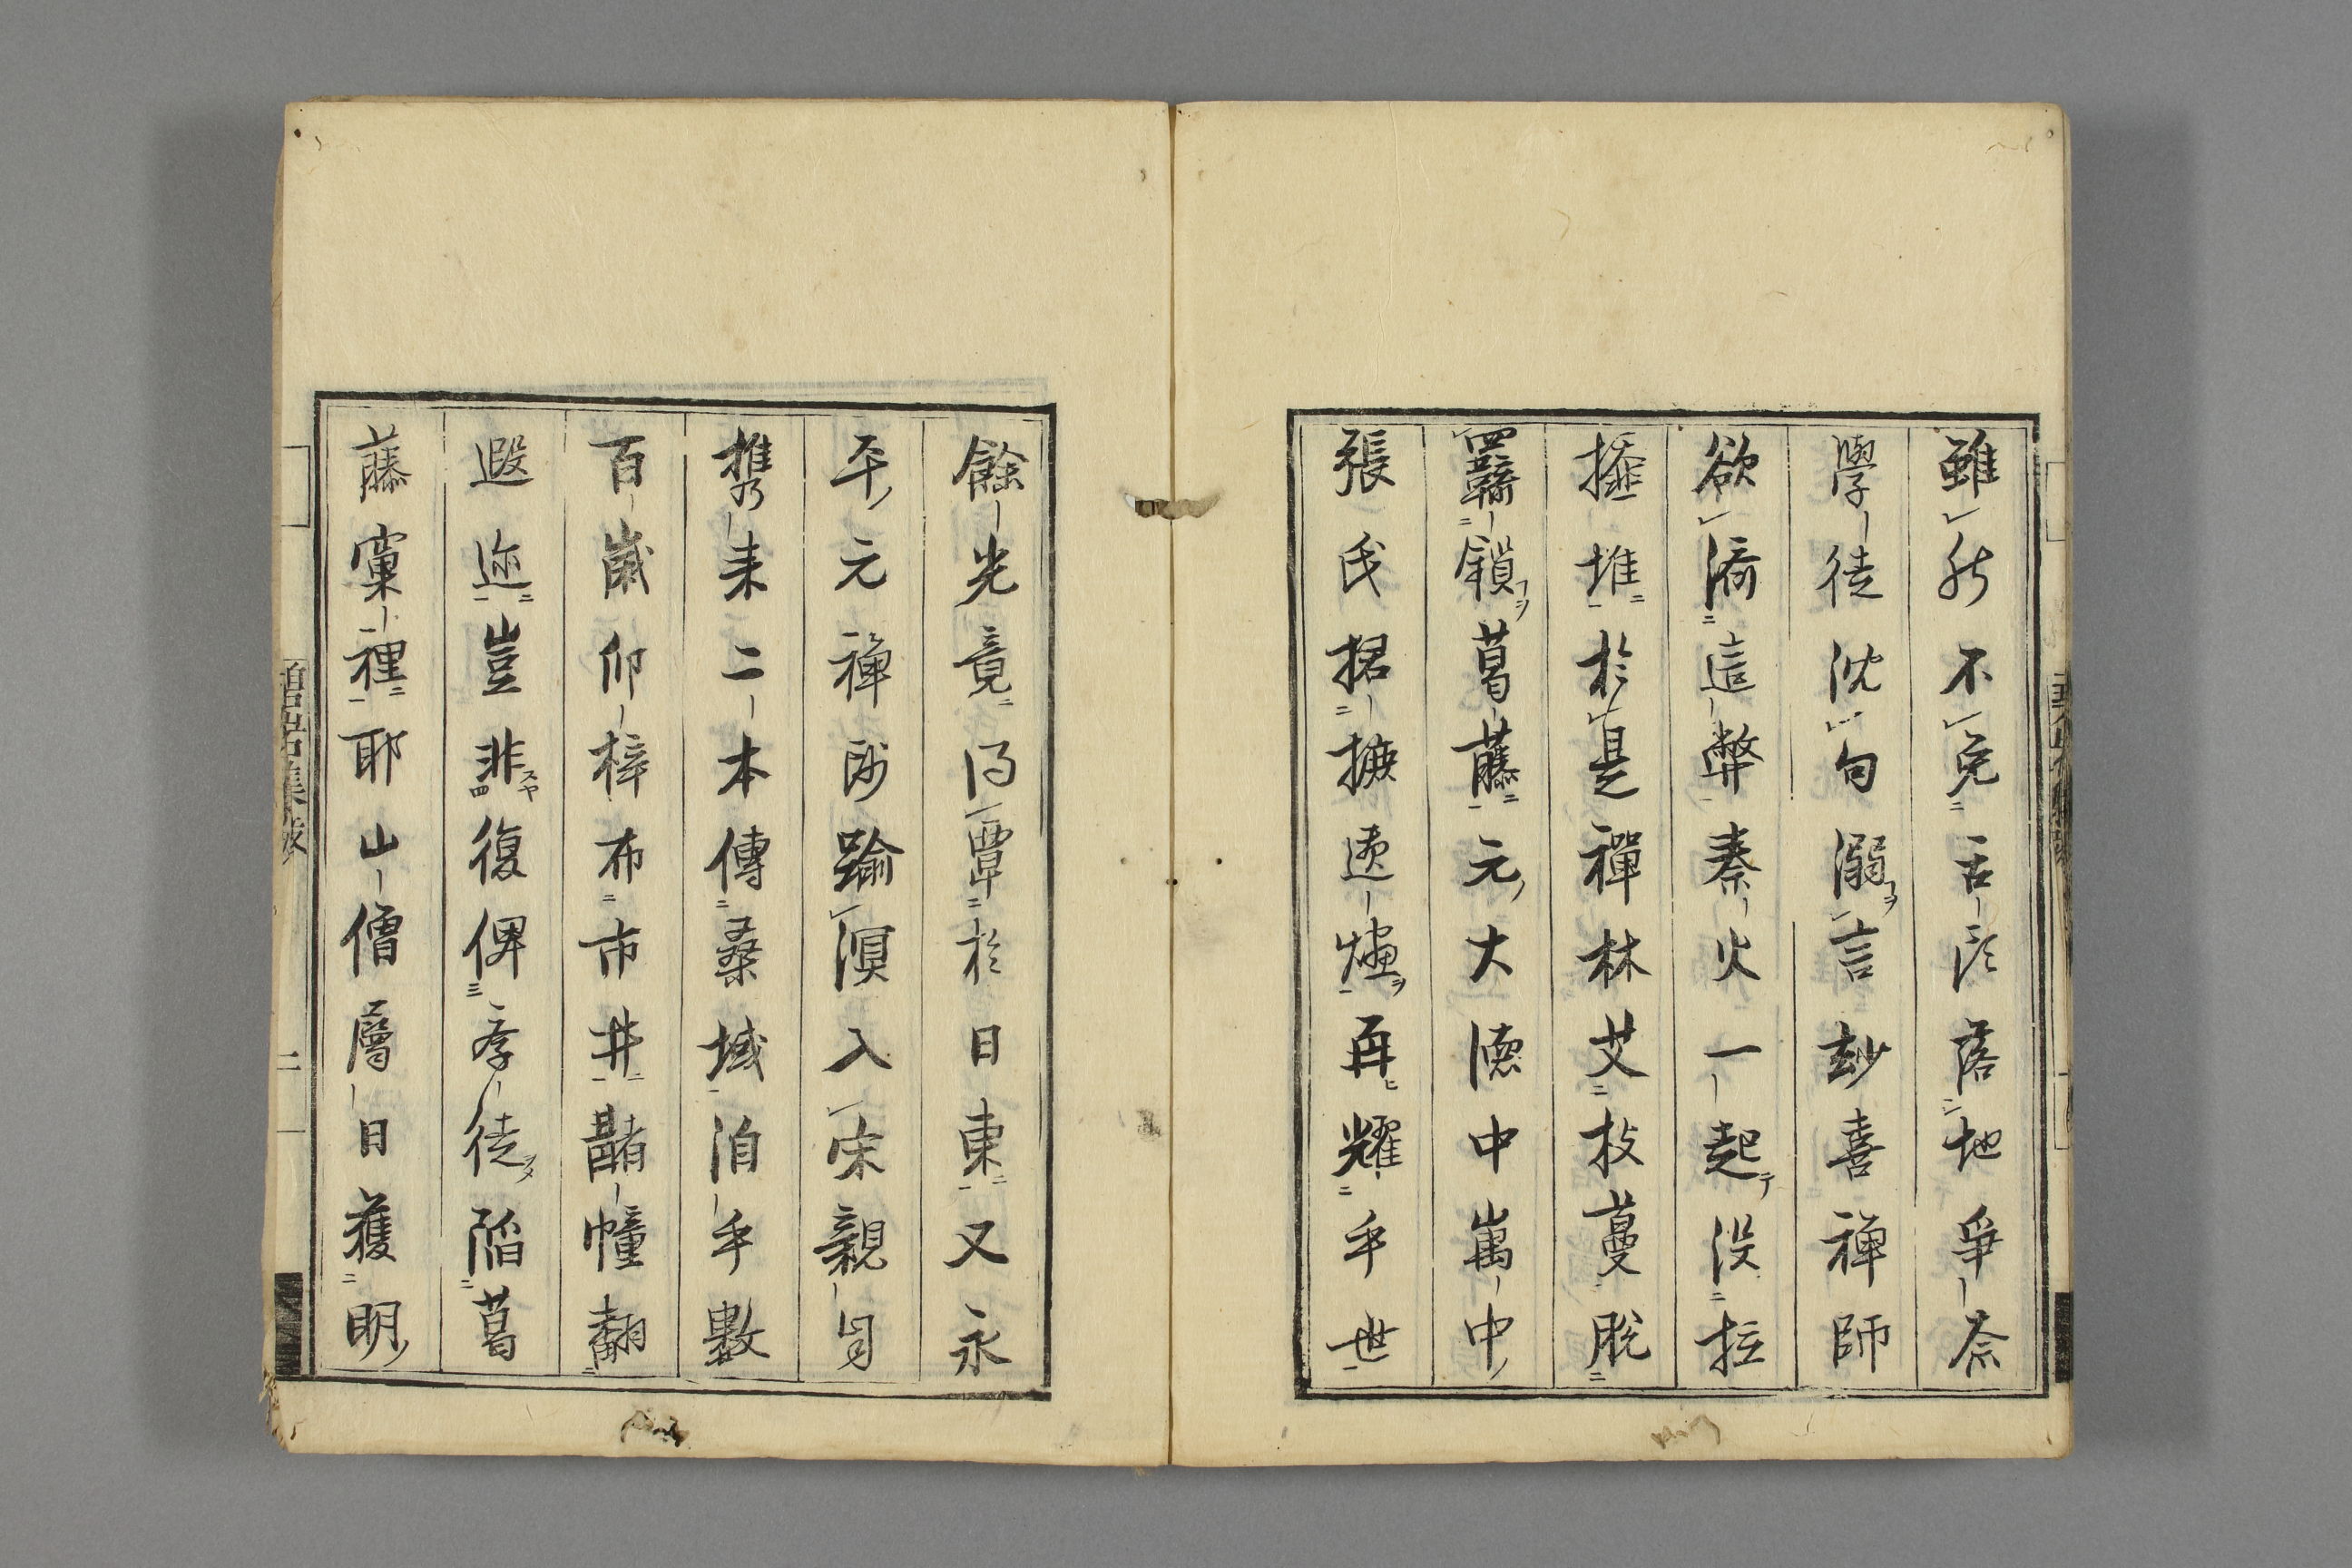 雖然不免舌漈落地爭奈
學徒沈句溺言玅喜禪師
欲濟這弊秦火一起沒拉
㩁堆於是禪林艾枝蔓脫
羈鎖葛藤元大德中嵩中
張氏捃摭遺燼再耀乎世
餘光竟得覃於日東又永
平元禪師踰溟入宋親自
攜來二本傳桑域洎乎數
百歲仰梓布市井譸幢翻
遐邇豈非復俾學徒陷葛
藤窠裡耶山僧屬日獲明
碧嵓集㪇
二